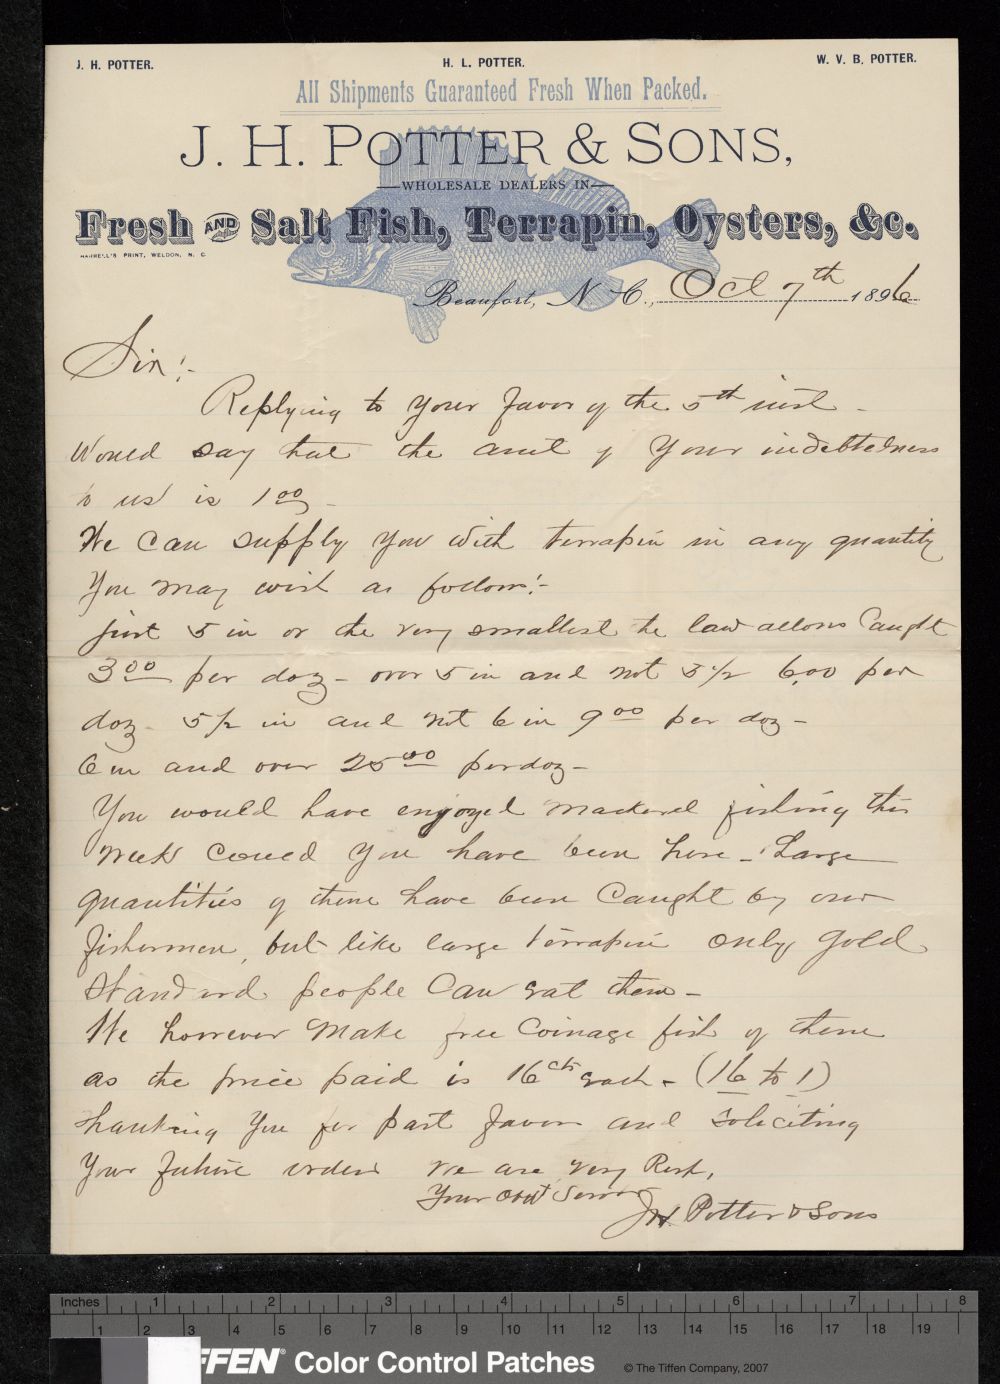 J. H. POTTER. H. L. POTTER. W. V. B. POTTER.
All Shipments Guaranteed Fresh When Packed.
J. H. POTTER & SONS,
WHOLESALE DEALERS IN
Fresh AND Salt Fish, Terrapin, Oysters, &c.
HARRELL'S PRINT, WELDON, N. C.
Beaufort, N. C., Oct 7th 1896
Sir:-
Replying to your favor of the 5th inst -
Would say that the amt of your indebtedness
to us is 1 00 -
We can supply you with terrapin in any quantity
you may wish as follows:-
just 5 in or the very smallest the law allows caught
3 00 per doz - over 5 in and not 5 1/2 6.00 per
doz - 5 1/2 in and not 6 in 9 00 per doz -
6 in and over 25 00 per doz -
You would have enjoyed mackerel fishing this
week could you have been here - Large
quantities of them have been caught by our
fishermen, but like large terrapin only gold
standard people can eat them -
We however make free coinage fish of them
as the price paid is 16 cts each - (16 to 1)
thanking you for past favors and soliciting
your future orders we are very Resp,
Your obdt Servts
J H. Potter & Sons
Inches 1 2 3 4 5 6 7 8
1 2 3 4 5 6 7 8 9 10 11 12 13 14 15 16 17 18 19
FFEN® Color Control Patches © The Tiffen Company, 2007